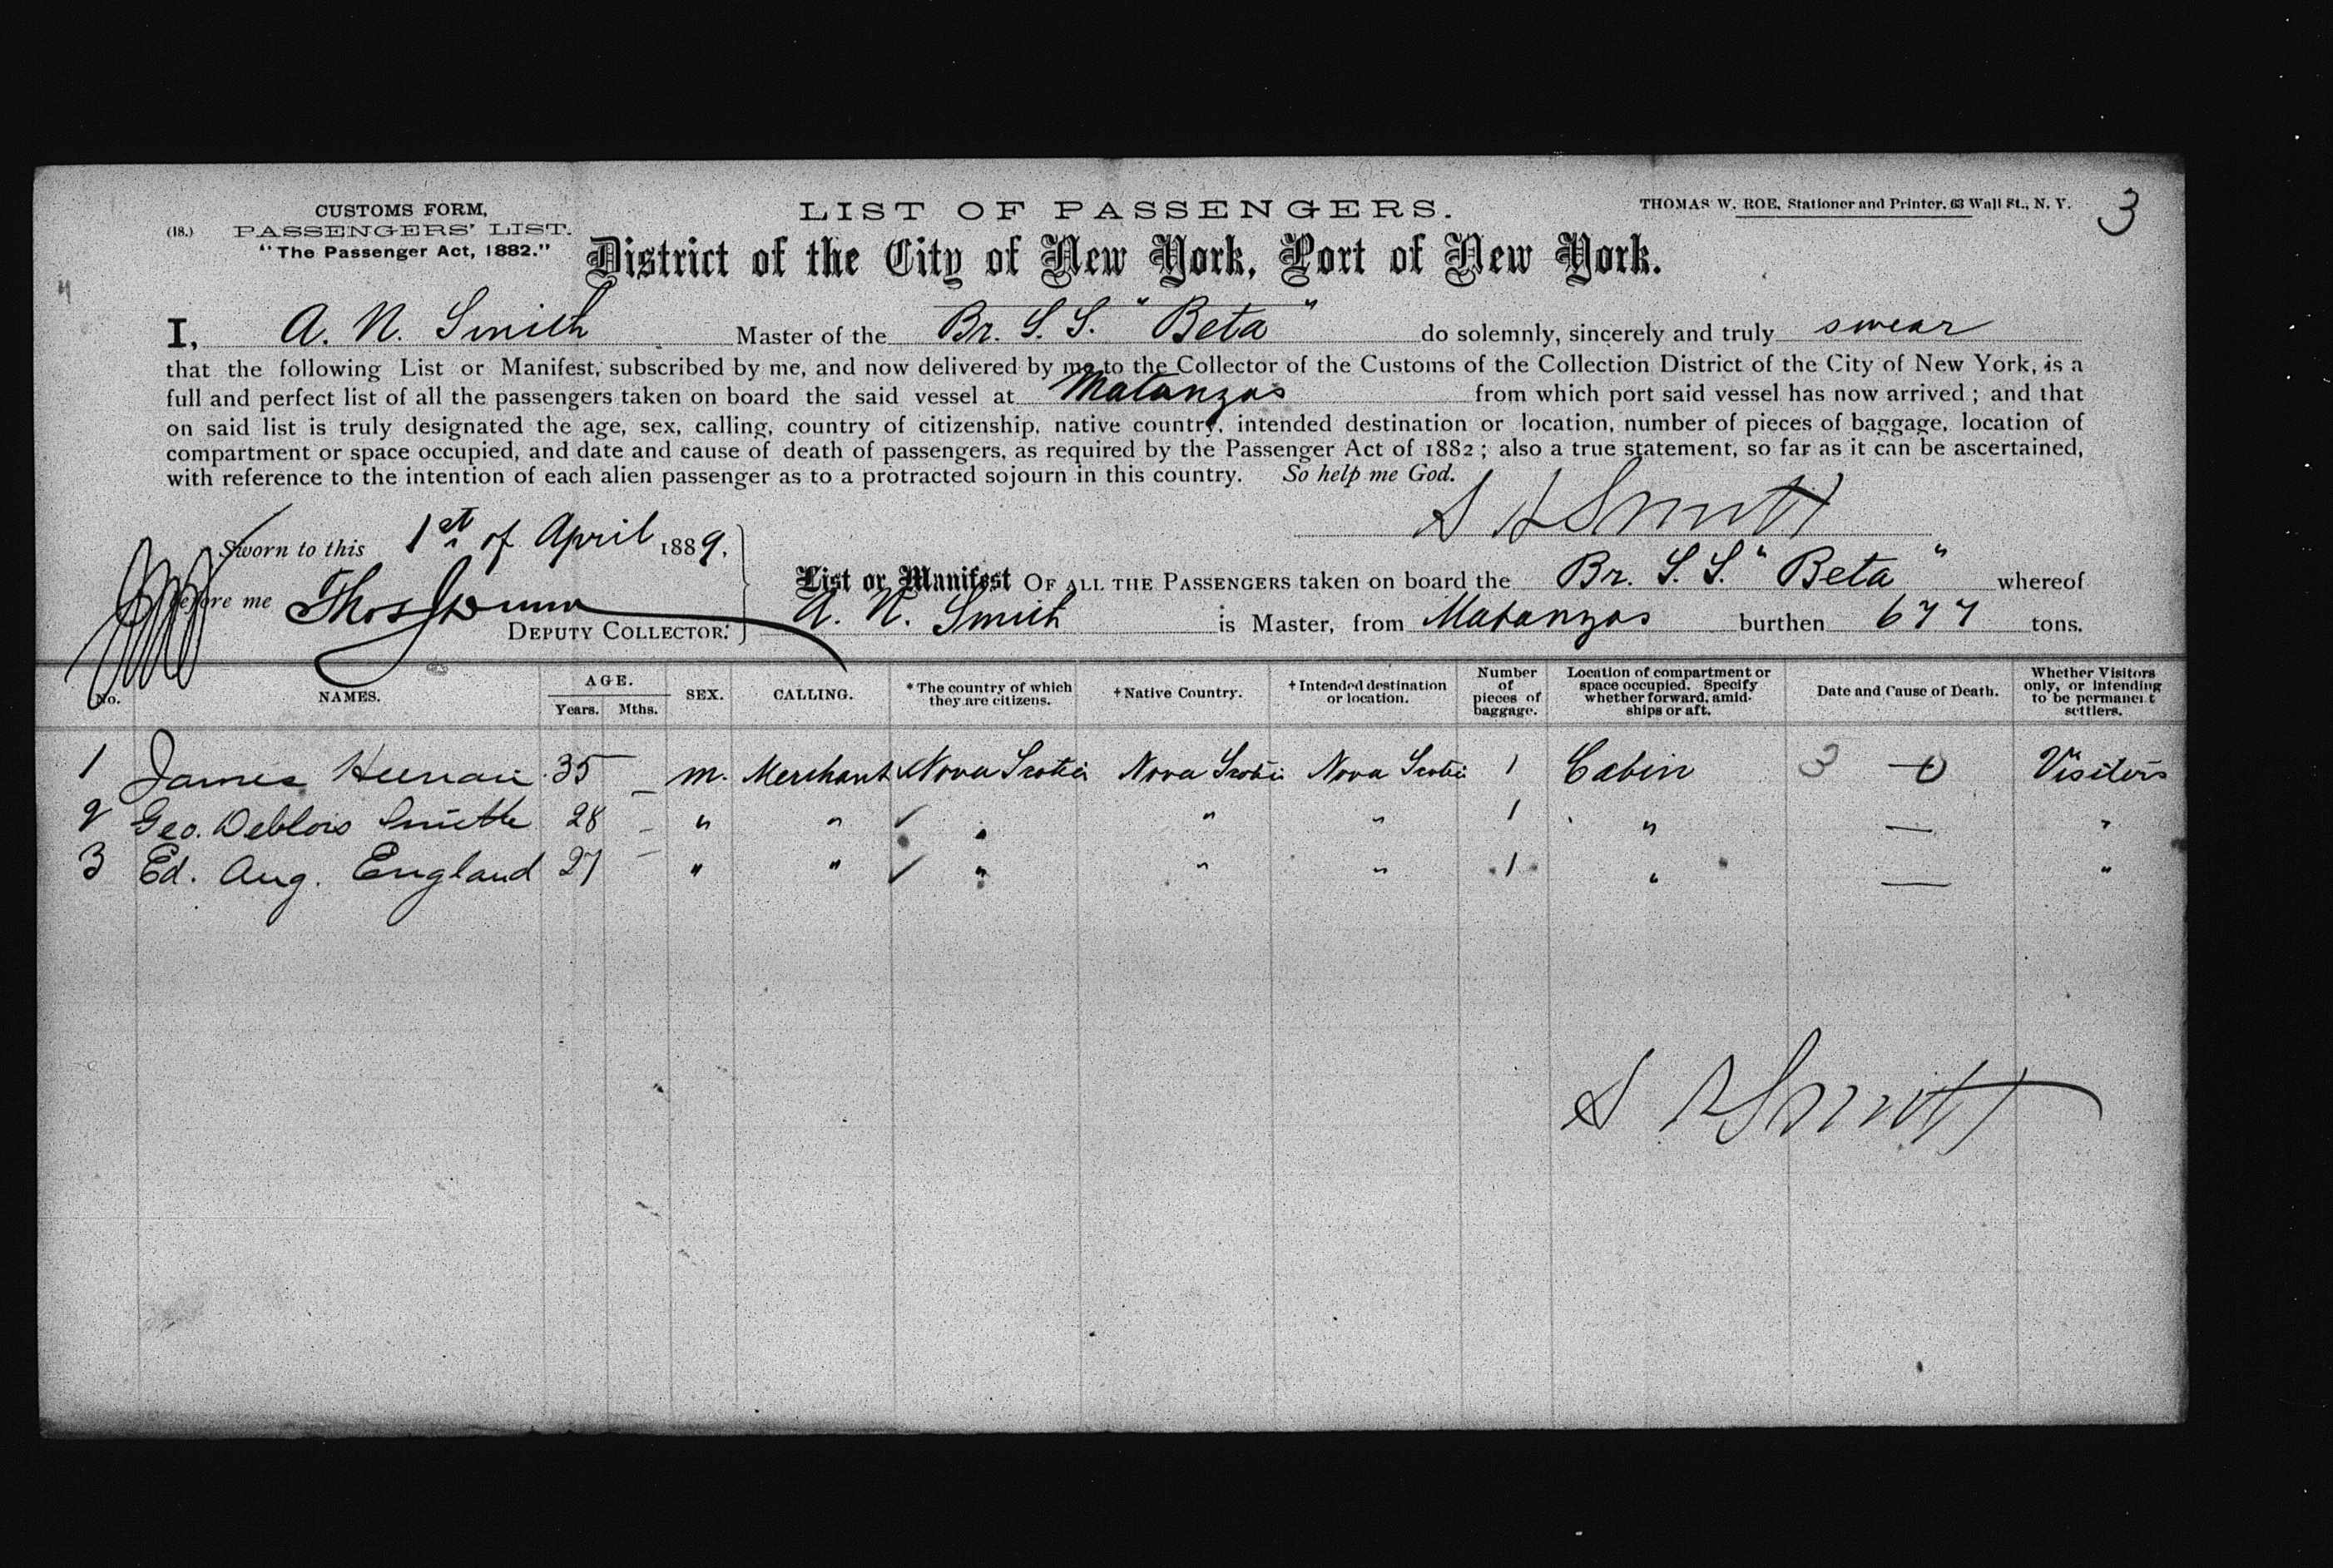 CUSTOMS FORM,
(18.) PASSENGERS' LIST.
"The Passenger Act, 1882."
LIST OF PASSENGERS.
THOMAS W. ROE, Stationer and Printer, 63 Wall St., N. Y.
3
District of the City of New York, Port of New York.
I, A. N. Smith Master of the Br. S. S. "Beta" do solemnly, sincerely and truly swear
that the following List or Manifest, subscribed by me, and now delivered by me to the Collector of the Customs of the Collection District of the City of New York, is a
full and perfect list of all the passengers taken on board the said vessel at Matanzas from which port said vessel has now arrived; and that
on said list is truly designated the age, sex, calling, country of citizenship, native country, intended destination or location, number of pieces of baggage, location of
compartment or space occupied, and date and cause of death of passengers, as required by the Passenger Act of 1882; also a true statement, so far as it can be ascertained,
with reference to the intention of each alien passenger as to a protracted sojourn in this country. So help me God.
Smith
Sworn to this 1st of April 1889,
before me Thos
DEPUTY COLLECTOR.
List or Manifest OF ALL THE PASSENGERS taken on board the Br. S. S. "Beta" whereof
A. N. Smith is Master, from Matanzas burthen 677 tons.
No. NAMES. AGE. Years. Mths. SEX. CALLING. * The country of which they are citizens. † Native Country. † Intended destination or location. Number of pieces of baggage. Location of compartment or space occupied. Specify whether forward, amidships or aft. Date and Cause of Death. Whether Visitors only, or intending to be permanent settlers.
1 James 35 — m. Merchant Nova Scotia Nova Scotia Nova Scotia 1 Cabin 3 — 0 Visitors
2 Geo. Deblois Smith 28 — " " ✓ " " " 1 " — "
3 Ed. Aug. England 27 — " " ✓ " " " 1 " — "
Smith